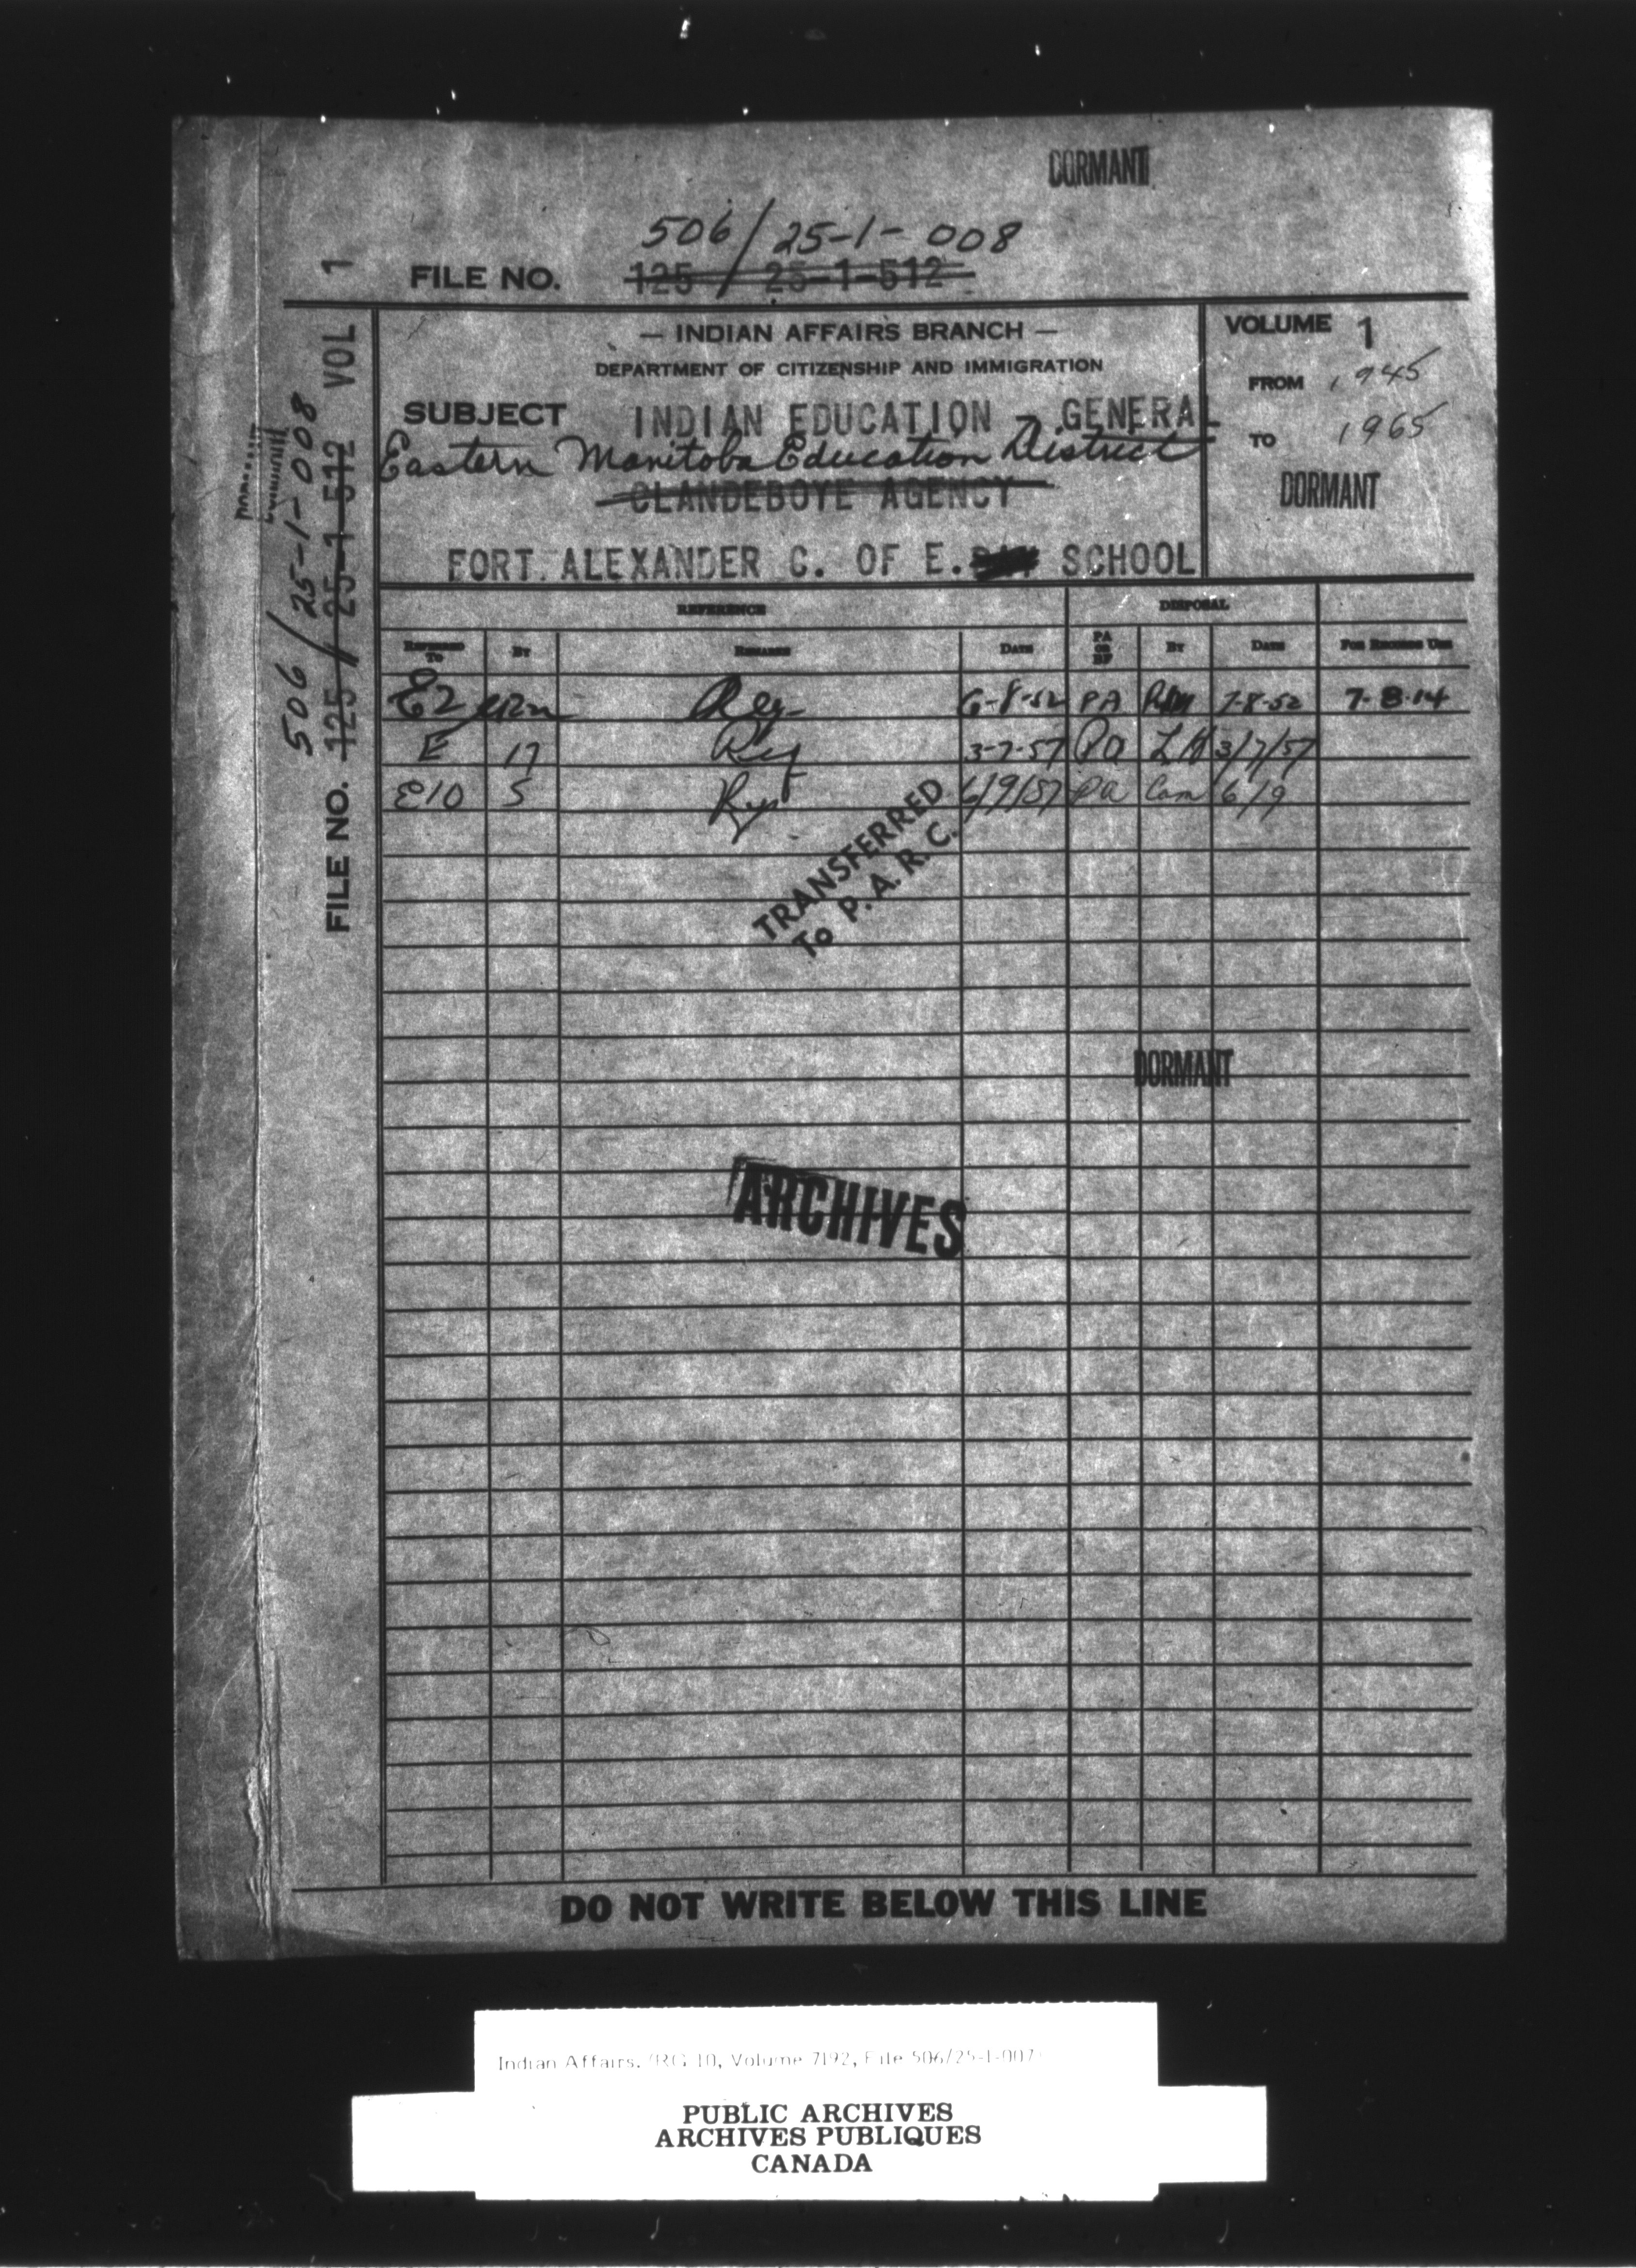 DORMANT
506/25-1-008
FILE NO. 125 / 25-1-512
FILE NO. 125 / 25-1-512 VOL 1
506/25-1-008
— INDIAN AFFAIRS BRANCH —
DEPARTMENT OF CITIZENSHIP AND IMMIGRATION
SUBJECT INDIAN EDUCATION - GENERAL
Eastern Manitoba Education District
CLANDEBOYE AGENCY
FORT ALEXANDER C. OF E. SCHOOL
VOLUME 1
FROM 1945
TO 1965
DORMANT
REFERENCE DISPOSAL
REFERRED TO BY REMARKS DATE PA OR BF BY DATE FOR RECORDS USE
E2 Reg. 6-8-52 PA 7-8-52 7-8-14
E 17 Req 3-7-57 PA LH 3/7/57
E10 5 6/9/57 PA Cam 6/9
TRANSFERRED
To P.A.R.C.
DORMANT
ARCHIVES
DO NOT WRITE BELOW THIS LINE
Indian Affairs. (RG 10, Volume 7192, File 506/25-1-007
PUBLIC ARCHIVES
ARCHIVES PUBLIQUES
CANADA